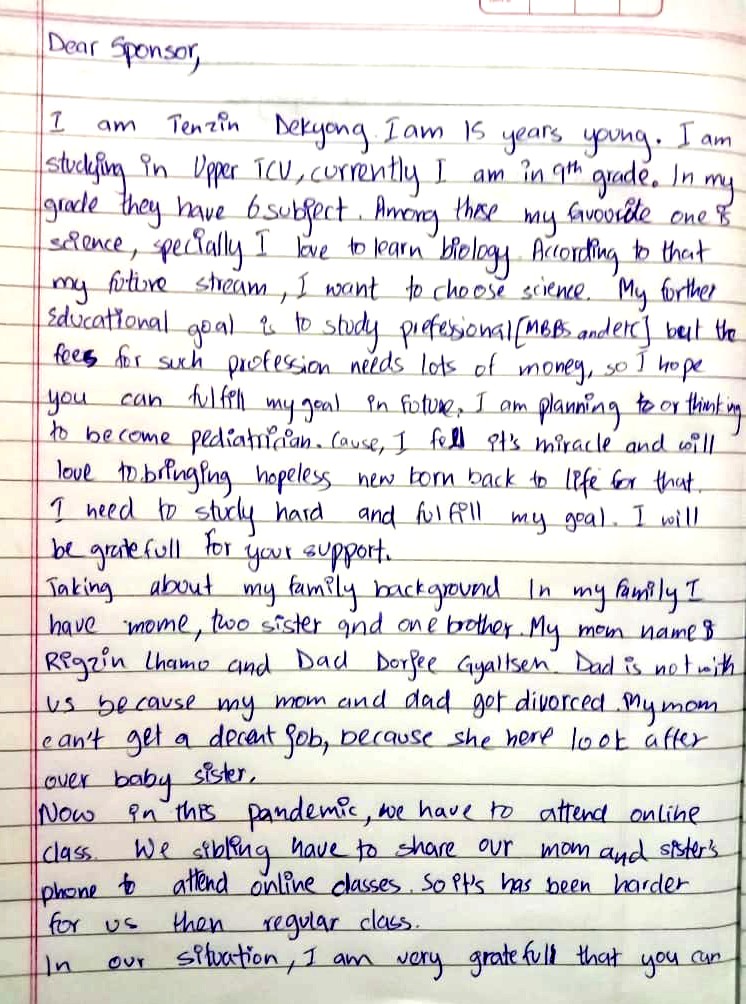 Dear Sponsor,
I am Tenzin Dekyong. I am 15 years young. I am
studying in Upper TCV, currently I am in 9th grade. In my
grade they have 6 subject. Among these my favourite one is
science, specially I love to learn biology. According to that
my future stream, I want to choose science. My forther
Educational goal is to study prefessional [MBBS and etc] but the
fees for such profession needs lots of money, so I hope
you can fulfill my goal in future. I am planning to or thinking
to become pediatrician. Cause, I fell it's miracle and will
love to bringing hopeless new born back to life for that.
I need to study hard and fulfill my goal. I will
be gratefull for your support.
Taking about my family background In my family I
have mome, two sister and one brother. My mom name is
Rigzin Lhamo and Dad Dorjee Gyaltsen. Dad is not with
us because my mom and dad got divorced. My mom
can't get a decent job, because she here look after
over baby sister.
Now in this pandemic, we have to attend online
class. We sibling have to share our mom and sister's
phone to attend online classes. So it's has been harder
for us then regular class.
In our situation, I am very gratefull that you can